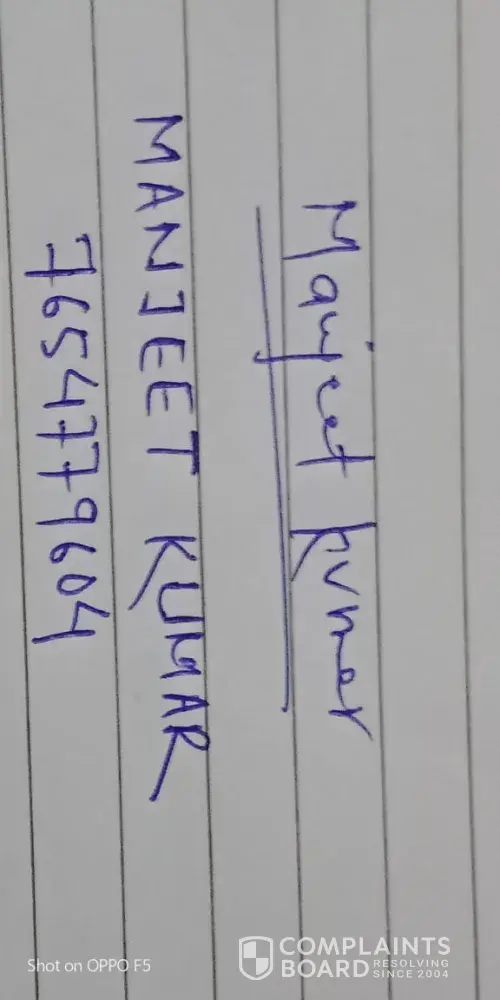 Manjeet Kumar
MANJEET KUMAR
7654779604
Shot on OPPO F5
COMPLAINTS
BOARD RESOLVING
SINCE 2004